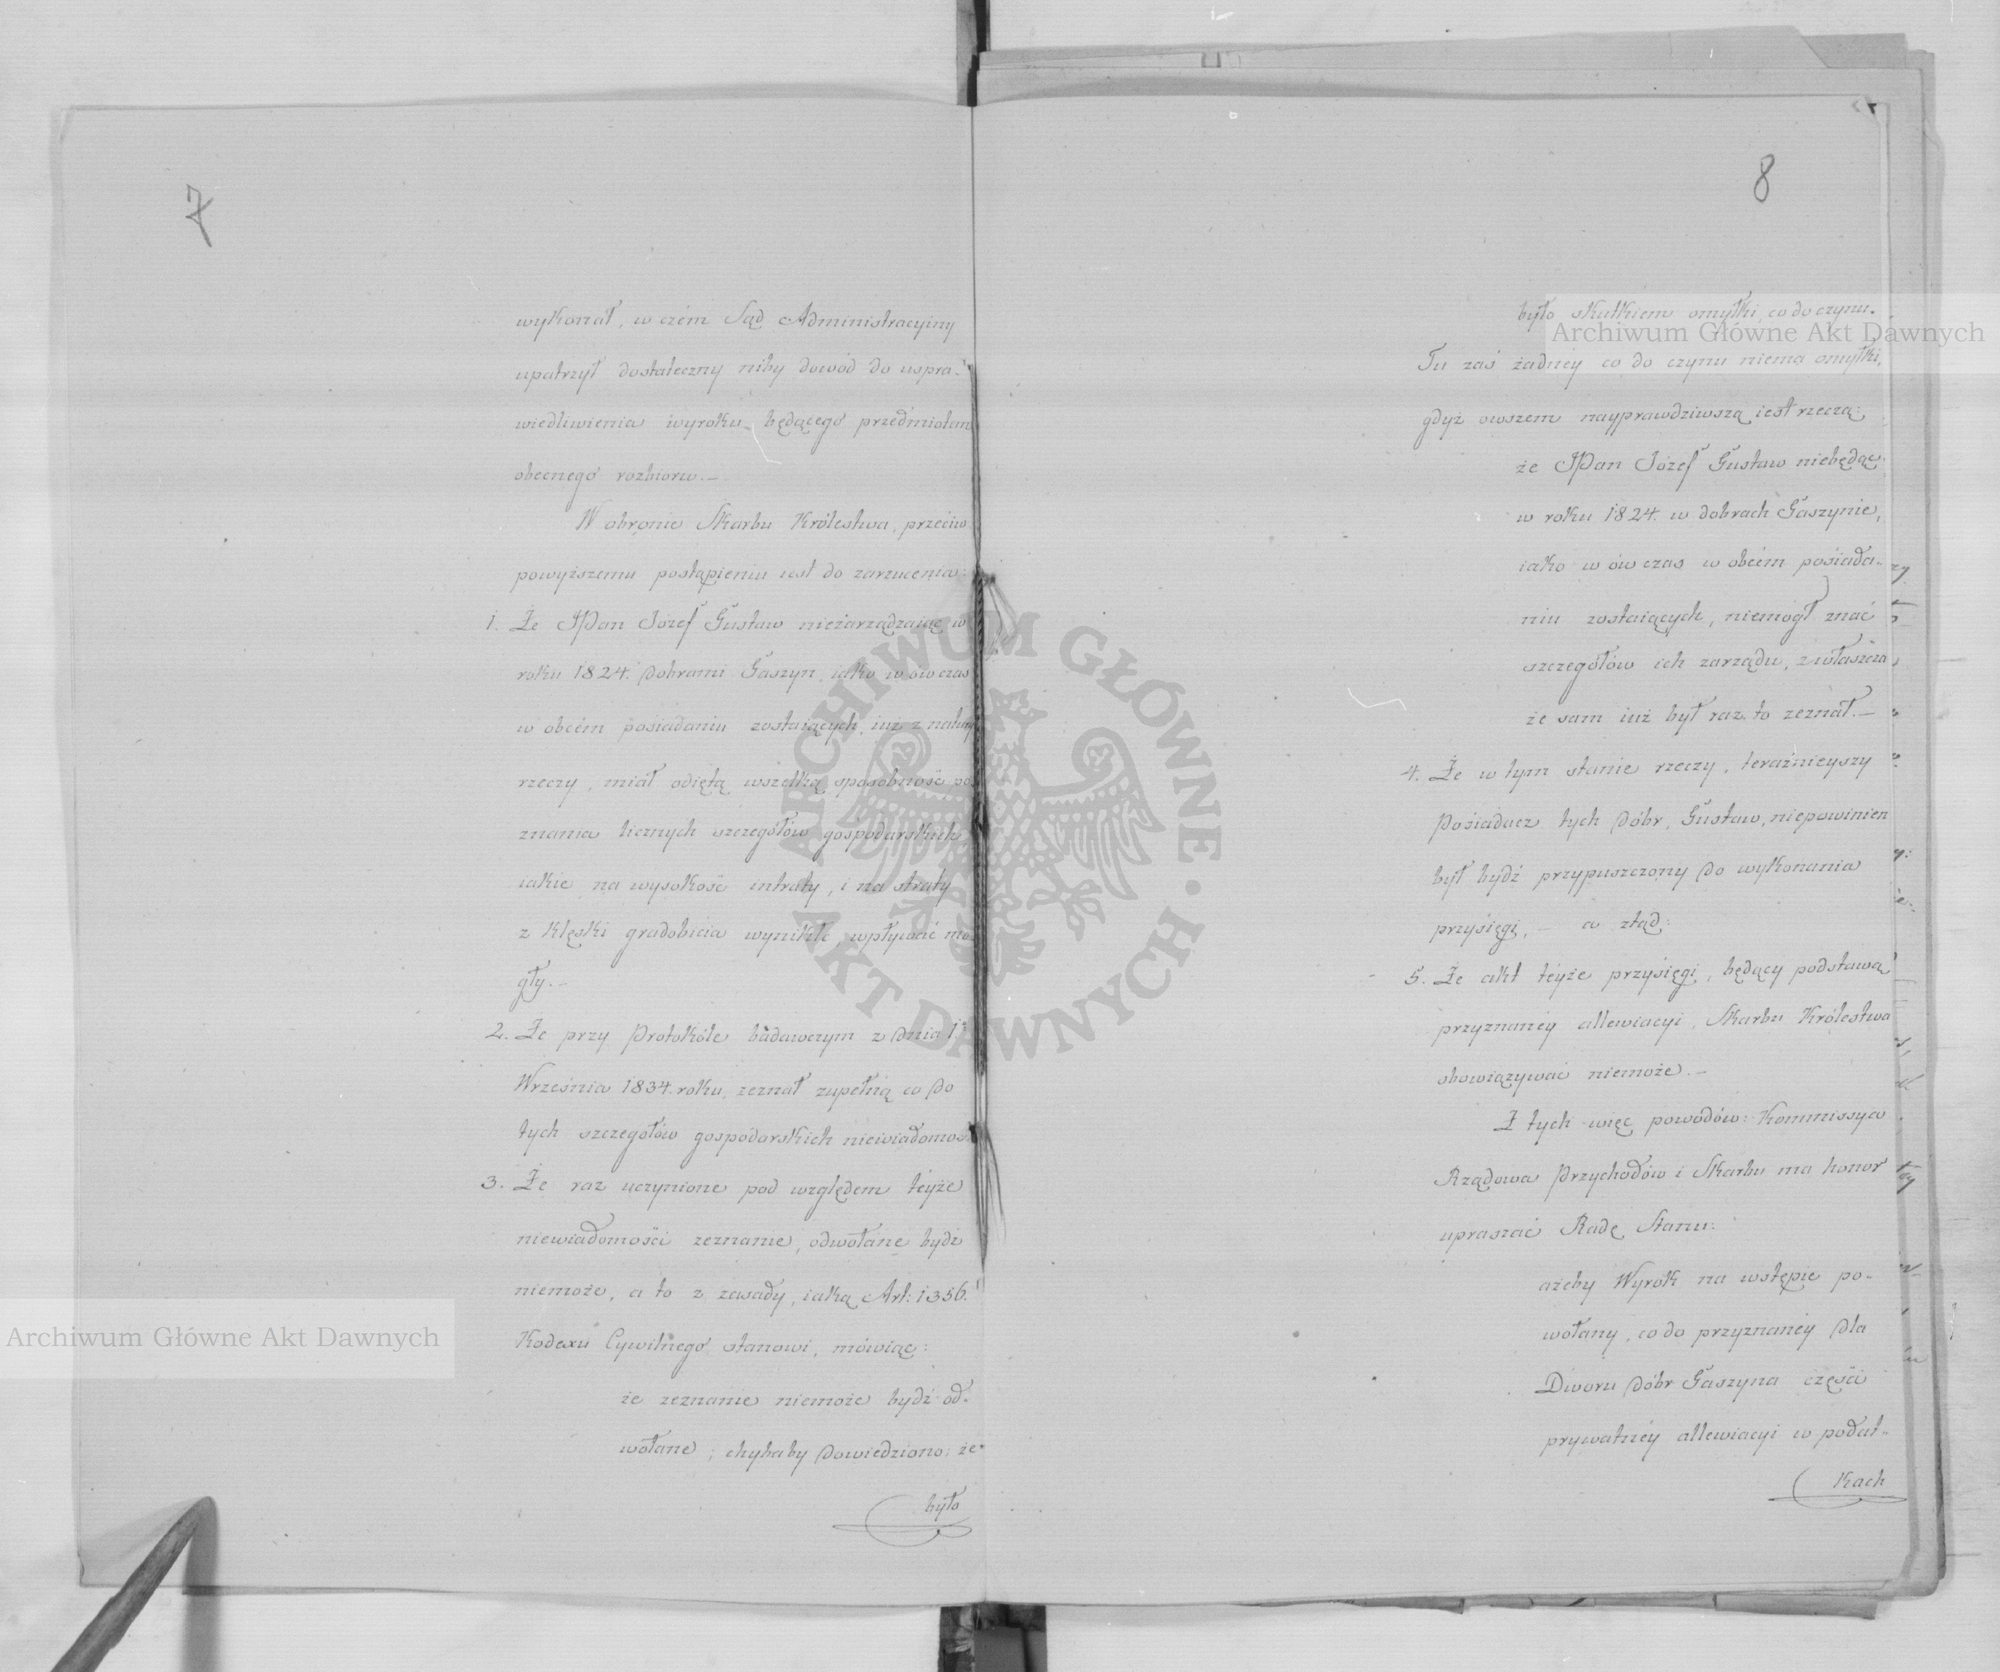 7
wykonał, w czém Sąd Administracyiny
upatrzył dostateczny niby dowód do uspra-
wiedliwienia wyroku, będącego przedmiotem
obecnego rozbioru.—
W obronie Skarbu Królestwa, przeciw
powyższemu postąpieniu iest do zarzucenia:
1. Że JPan Józef Gustaw niezarządzaiąc w
roku 1824. Dobrami Gaszyn, iako wówczas
w obcém posiadaniu zostaiących, iuż z natury
rzeczy, miał odiętą wszelką sposobność po-
znania licznych szczegółów gospodarskich,
iakie na wysokość intraty, i na straty
z klęski gradobicia wynikłe, wpływać mo-
gły.—
2. Że przy Protokóle badawczym z dnia 1.
Września 1834. roku, zeznał zupełną co do
tych szczegółów gospodarskich niewiadomość.
3. Że raz uczynione pod względem teyże
niewiadomości zeznanie, odwołane bydź
niemoże, a to z zasady, iaką Art: 1356.
Kodexu Cywilnego stanowi, mówiąc:
że zeznanie niemoże bydź od-
wołane; chybaby dowiedziono; że
było
8
było skutkiem omyłki, co do czynu.
Tu zaś żadnéy co do czynu niema omyłki,
gdyż owszem nayprawdziwszą iest rzeczą:
że JPan Józef Gustaw niebędąc
w roku 1824. w dobrach Gaszynie,
iako w ówczas w obcém posiada-
niu zostaiących, niemógł znać
szczegółów ich zarządu, zwłaszcza
że sam iuż był raz to zeznał.—
4. Że w tym stanie rzeczy, teraźnieyszy
Posiadacz tych Dóbr, Gustaw, niepowinien
był bydź przypuszczony do wykonania
przysięgi,— a ztąd:
5. Że akt téyże przysięgi, będący podstawą
przyznanéy allewiacyi, Skarbu Królestwa
obowiązywać niemoże.—
Z tych więc powodów: Kommissya
Rządowa Przychodów i Skarbu ma honor
upraszać Radę Stanu:
ażeby Wyrok na wstępie po-
wołany, co do przyznanéy dla
Dworu Dóbr Gaszyna części
prywatnéy allewiacyi w podat-
kach
Archiwum Główne Akt Dawnych
Archiwum Główne Akt Dawnych
ARCHIWUM GŁÓWNE • AKT DAWNYCH •